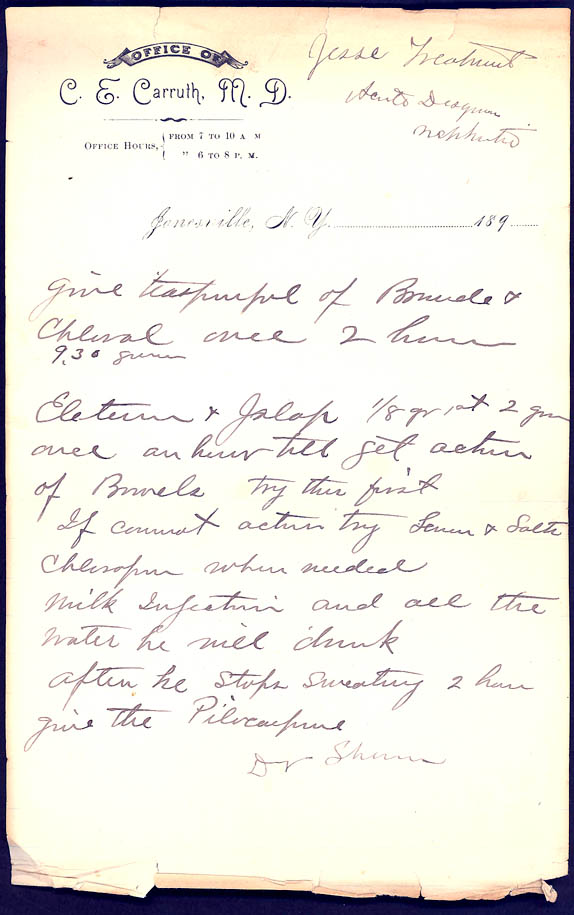 OFFICE OF
C. E. Carruth, M. D.
OFFICE HOURS, FROM 7 TO 10 A. M
" 6 TO 8 P. M.
Jesse Treatment
Acute Desquam
nephritis
Jonesville, N. Y. 189
Give teaspunful of Bromide &
Chloral once 2 hours
9,30 given
& Jalap 1/8 gr 2 grn
once an hour till get action
of Bowels try this first
If cannot action try Senna & Salts
Chloroform when needed
Milk Injection and all the
water he will drink
after he stops sweating 2 hour
give the Pilocarpine
Dr